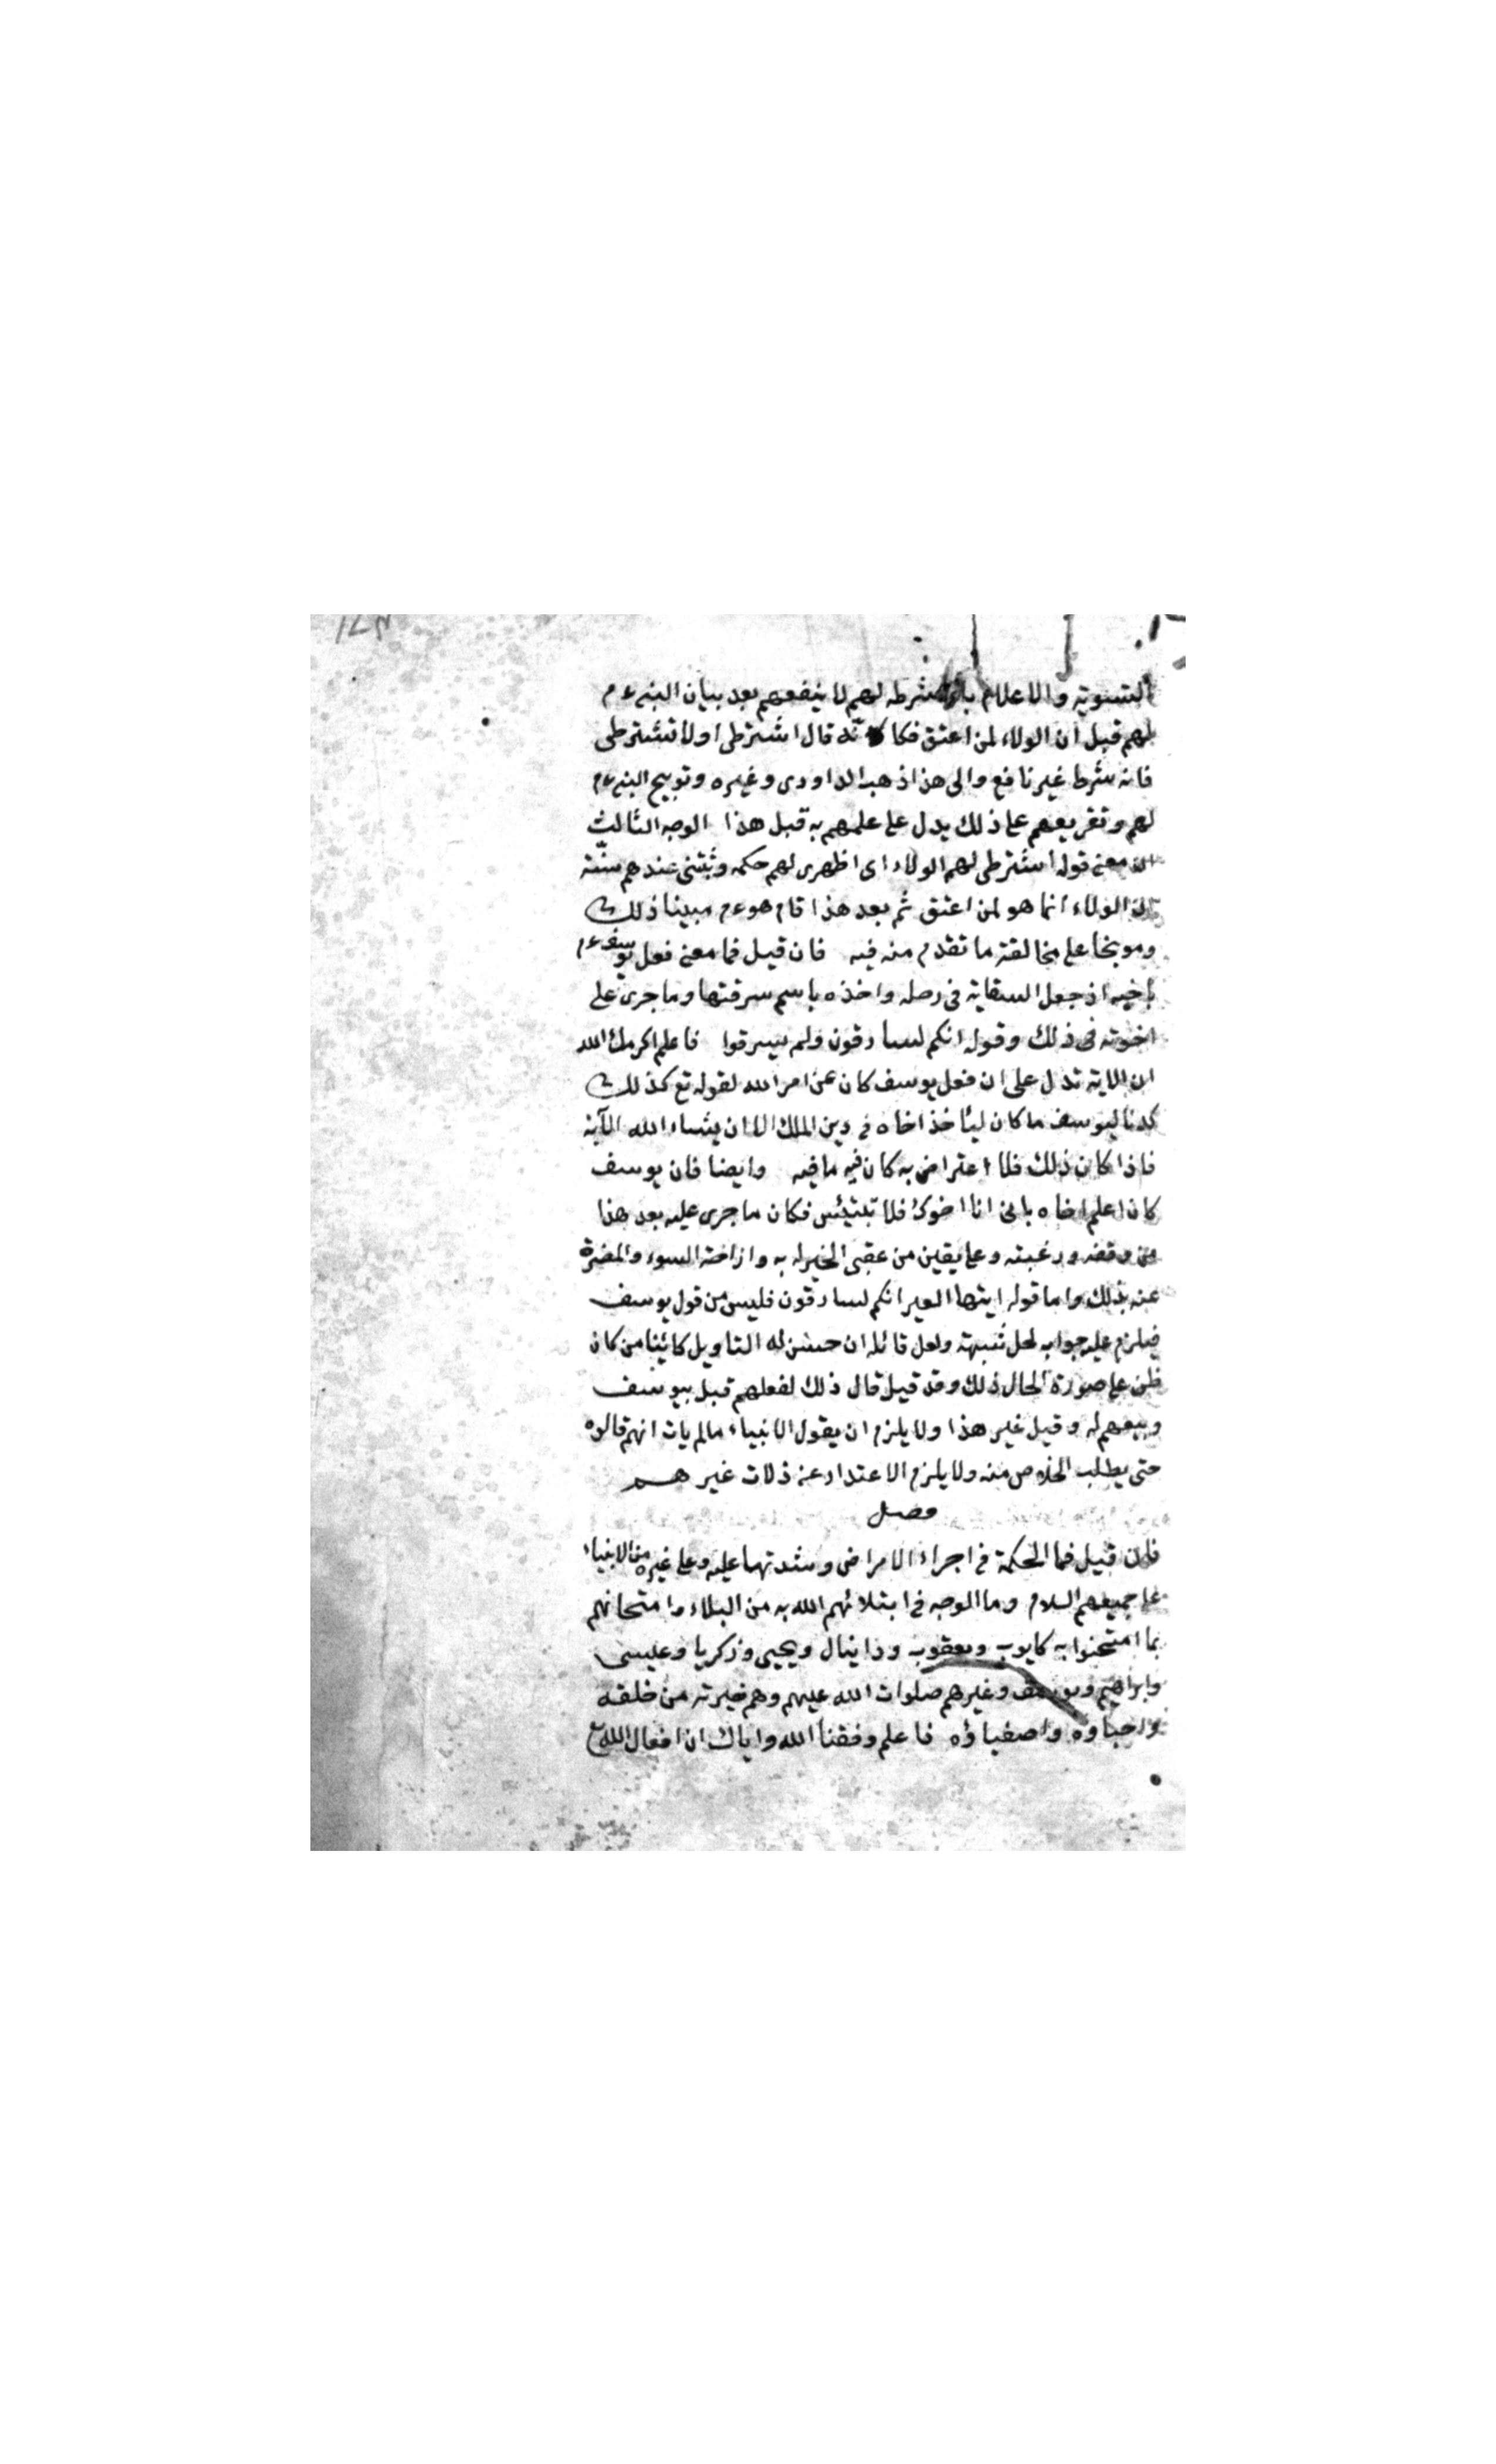 التسوية والاعلام بان شرطه لهم لا ينفعهم بعد بيان النبي عم
لهم قبل ان الولاء لمن اعتق فكانّه قال اشترطى اولا تشترطى
فانه شرط غير نافع والى هذا ذهب الداودى وغيره وتوبيخ النبي عم
لهم وتقريعهم على ذلك يدل على علمهم به قبل هذا الوجه الثالث
ان معنى قوله اشترطى لهم الولاء اى اظهرى لهم حكمه وبيّنى عندهم سنّة
ان الولاء انما هو لمن اعتق ثم بعد هذا قام هو عم مبينا ذلك
وموبخا على مخالفة ما تقدم منه فيه فان قيل فما معنى فعل يوسف عم
باخيه اذ جعل السقاية فى رحله واخذه باسم سرقتها وما جرى على
اخوته فى ذلك وقوله انكم لسارقون ولم يسرقوا فاعلم اكرمك الله
ان الاية تدل على ان فعل يوسف كان عن امر الله لقوله تع كذلك
كدنا ليوسف ما كان ليأخذ اخاه فى دين الملك الا ان يشاء الله الآية
فاذا كان ذلك فلا اعتراض به كان فيه ما فيه وايضا فان يوسف
كان اعلم اخاه بانى انا اخوك فلا تبتئس فكان ما جرى عليه بعد هذا
من وفقه ورغبته وعلى يقين من عقبى الخير له به وازاحة السوء والمضرة
عنه بذلك واما قوله ايتها العير انكم لسارقون فليس من قول يوسف
فيلزم عليه جواب لحل شبهة ولعل قائله ان حسن له التاويل كائنا من كان
ظن على صورة الحال ذلك وقد قيل قال ذلك لفعلهم قبل بيوسف
وبيعهم له وقيل غير هذا ولا يلزم ان يقول الانبياء ما لم يات انهم قالوه
حتى يطلب الخلاص منه ولا يلزم الاعتذار عن زلات غيرهم
فصل
فان قيل فما الحكمة فى اجراء الامراض وشدتها عليه وعلى غيره من الانبياء
على جميعهم السلام وما الوجه فى ابتلائهم الله به من البلاء وامتحانهم
بما امتحنوا به كايوب ويعقوب ودانيال ويحيى وزكريا وعيسى
وابراهيم ويوسف وغيرهم صلوات الله عليهم وهم خيرته من خلقه
واحباوه واصفياؤه فاعلم وفقنا الله واياك ان افعال الله تع